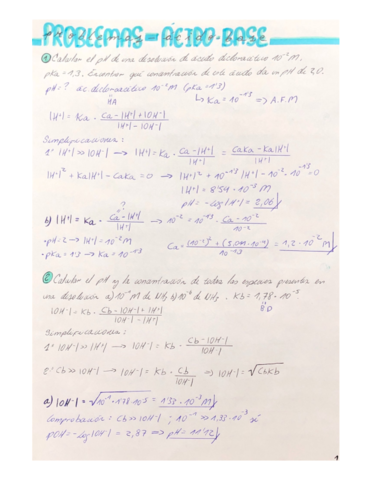 PROBLEMAS - ÁCIDO-BASE
① Calcular el pH de una disolución de ácido dicloroacético 10⁻² M,
pKa = 1,3. Encontrar qué concentración de este ácido da un pH de 2,0.
pH = ? ác dicloroacético 10⁻² M (pKa = 1'3)
HA
↳ Ka = 10⁻¹'³ => A.F.M
|H⁺| = Ka · Ca - |H⁺| + |OH⁻| / |H⁺| - |OH⁻|
Simplificaciones:
1º |H⁺| >> |OH⁻| → |H⁺| = Ka · Ca - |H⁺| / |H⁺| = CaKa - Ka|H⁺| / |H⁺|
|H⁺|² + Ka|H⁺| - CaKa = 0 → |H⁺|² + 10⁻¹'³ |H⁺| - 10⁻² · 10⁻¹'³ = 0
|H⁺| = 8'54 · 10⁻³ M
pH = -log |H⁺| = 2,06
?
b) |H⁺| = Ka · Ca - |H⁺| / |H⁺| → 10⁻² = 10⁻¹'³ · Ca - 10⁻² / 10⁻²
• pH = 2 → |H⁺| = 10⁻² M
• pKa = 1'3 → Ka = 10⁻¹'³
10⁻¹'³ = 1,2 · 10⁻² M
② Calcular el pH y la concentración de todas las especies presentes en
una disolución a) 10⁻¹ M de NH₃ b) 10⁻⁴ de NH₃. Kb = 1,78 · 10⁻⁵
BD
|OH⁻| = Kb · Cb - |OH⁻| + |H⁺| / |OH⁻| - |H⁺|
Simplificaciones:
1º |OH⁻| >> |H⁺| → |OH⁻| = Kb · Cb - |OH⁻| / |OH⁻|
2º Cb >> |OH⁻| → |OH⁻| = Kb · Cb / |OH⁻| => |OH⁻| = √CbKb
a) |OH⁻| = √10⁻¹ · 1'78·10⁻⁵ = 1'33 · 10⁻³ M
Comprobación: Cb >> |OH⁻| ; 10⁻¹ >> 1.33 · 10⁻³ sí
pOH = -log |OH⁻| = 2,87 => pH = 11'12
1